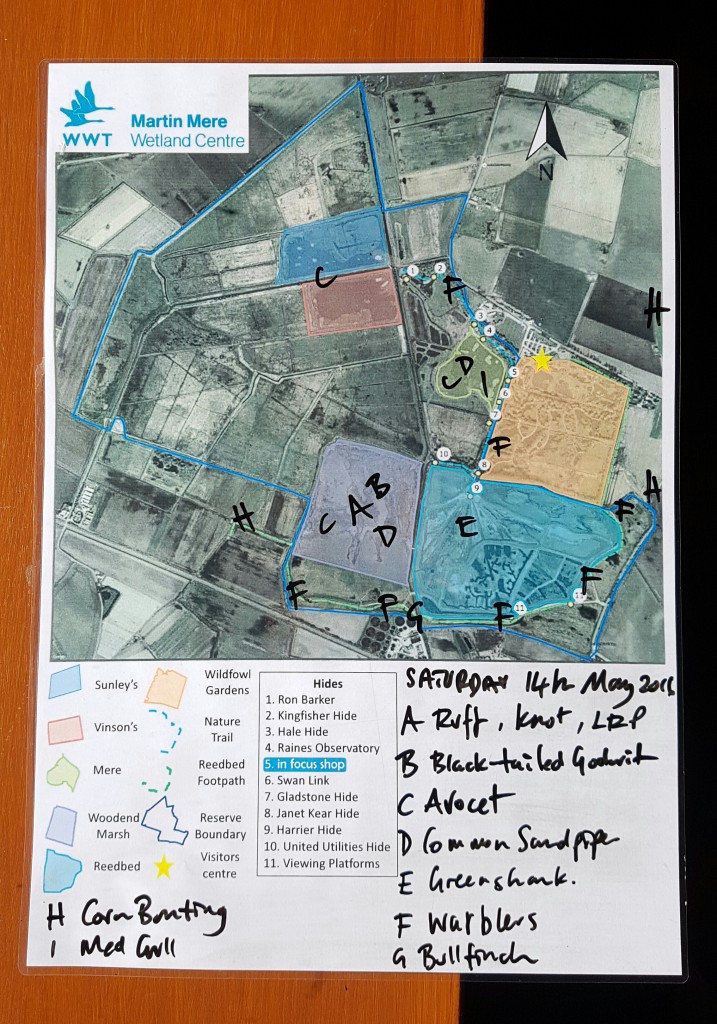 WWT
Martin Mere
Wetland Centre
N
C
1
2
F
H
3
4
C D I
5
6
7
F
10
8
9
H
C A B
D
E
F
H
F
F
G
F
11
F
11
Sunley's
Wildfowl
Gardens
Vinson's
Nature
Trail
Mere
Reedbed
Footpath
Woodend
Marsh
Reserve
Boundary
Reedbed
Visitors
centre
Hides
1. Ron Barker
2. Kingfisher Hide
3. Hale Hide
4. Raines Observatory
5. in focus shop
6. Swan Link
7. Gladstone Hide
8. Janet Kear Hide
9. Harrier Hide
10. United Utilities Hide
11. Viewing Platforms
SATURDAY 14th May 2016
A Ruff, Knot, LRP
B Black-tailed Godwit
C Avocet
D Common Sandpiper
E Greenshank.
F Warblers
G Bullfinch
H Corn Bunting
I Med Gull